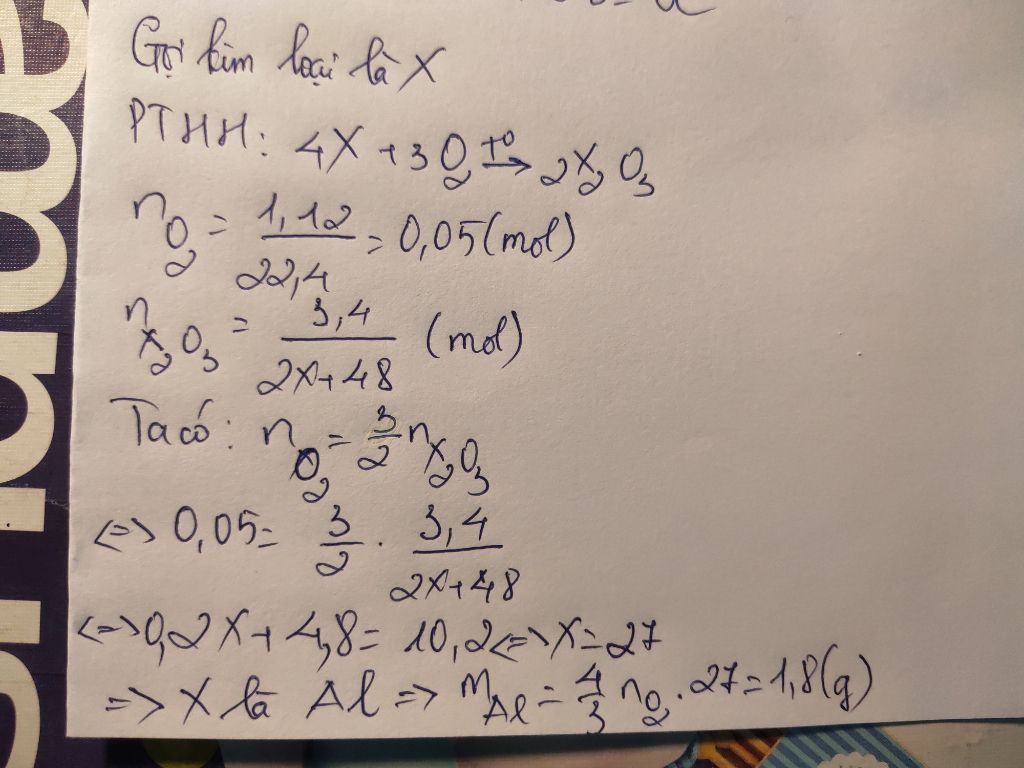 Gọi kim loại là X
PTHH: 4X + 3O₂ →(t⁰) 2X₂O₃
n O₂ = 1,12/22,4 = 0,05 (mol)
n X₂O₃ = 3,4/(2X+48) (mol)
Ta có: n O₂ = 3/2 n X₂O₃
<=> 0,05 = 3/2 . 3,4/(2X+48)
<=> 0,2X + 4,8 = 10,2 <=> X = 27
=> X là Al => m Al = 4/3 n O₂ . 27 = 1,8 (g)